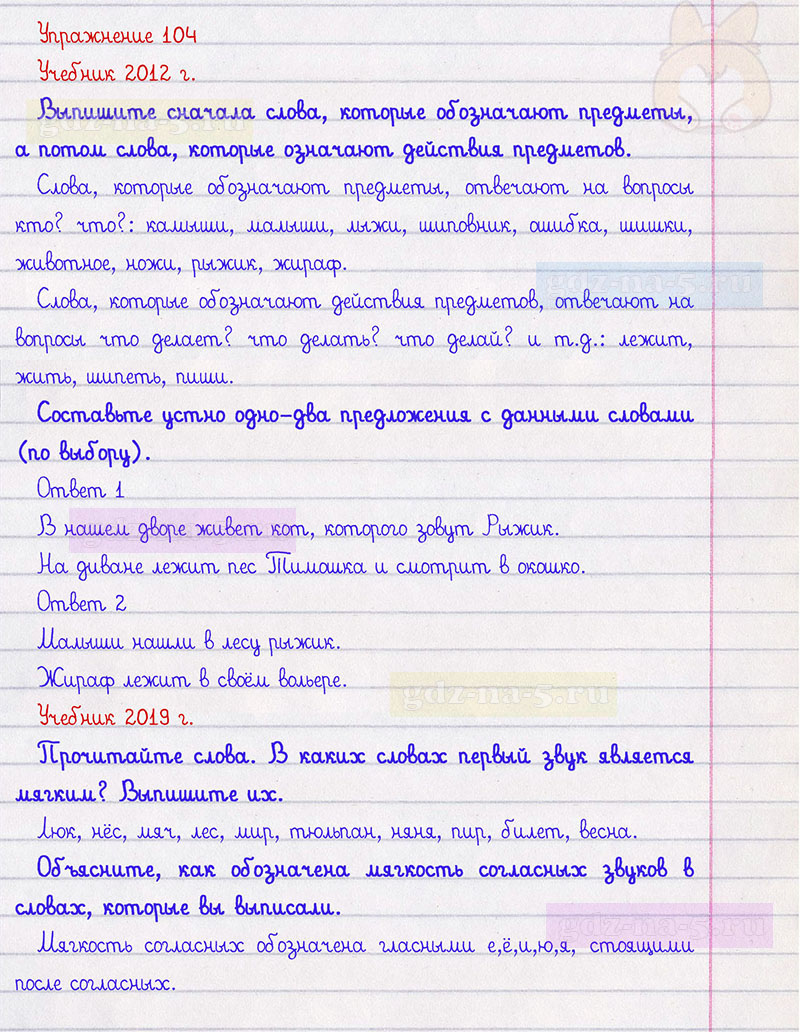 Упражнение 104
Учебник 2012 г.
Выпишите сначала слова, которые обозначают предметы,
gdz-na-5.ru
а потом слова, которые означают действия предметов.
Слова, которые обозначают предметы, отвечают на вопросы
кто? что?: камыши, малыши, лыжи, шиповник, ошибка, шишки,
животное, ножи, рыжик, жираф.
gdz-na-5.ru
Слова, которые обозначают действия предметов, отвечают на
вопросы что делает? что делать? что делай? и т.д.: лежит,
жить, шипеть, пиши.
Составьте устно одно-два предложения с данными словами
(по выбору).
Ответ 1
В нашем дворе живет кот, которого зовут Рыжик.
На диване лежит пес Тимошка и смотрит в окошко.
Ответ 2
Малыши нашли в лесу рыжик.
Жираф лежит в своём вольере.
gdz-na-5.ru
Учебник 2019 г.
Прочитайте слова. В каких словах первый звук является
мягким? Выпишите их.
Люк, нёс, мяч, лес, мир, тюльпан, няня, пир, билет, весна.
Объясните, как обозначена мягкость согласных звуков в
словах, которые вы выписали.
gdz-na-5.ru
Мягкость согласных обозначена гласными е,ё,и,ю,я, стоящими
после согласных.